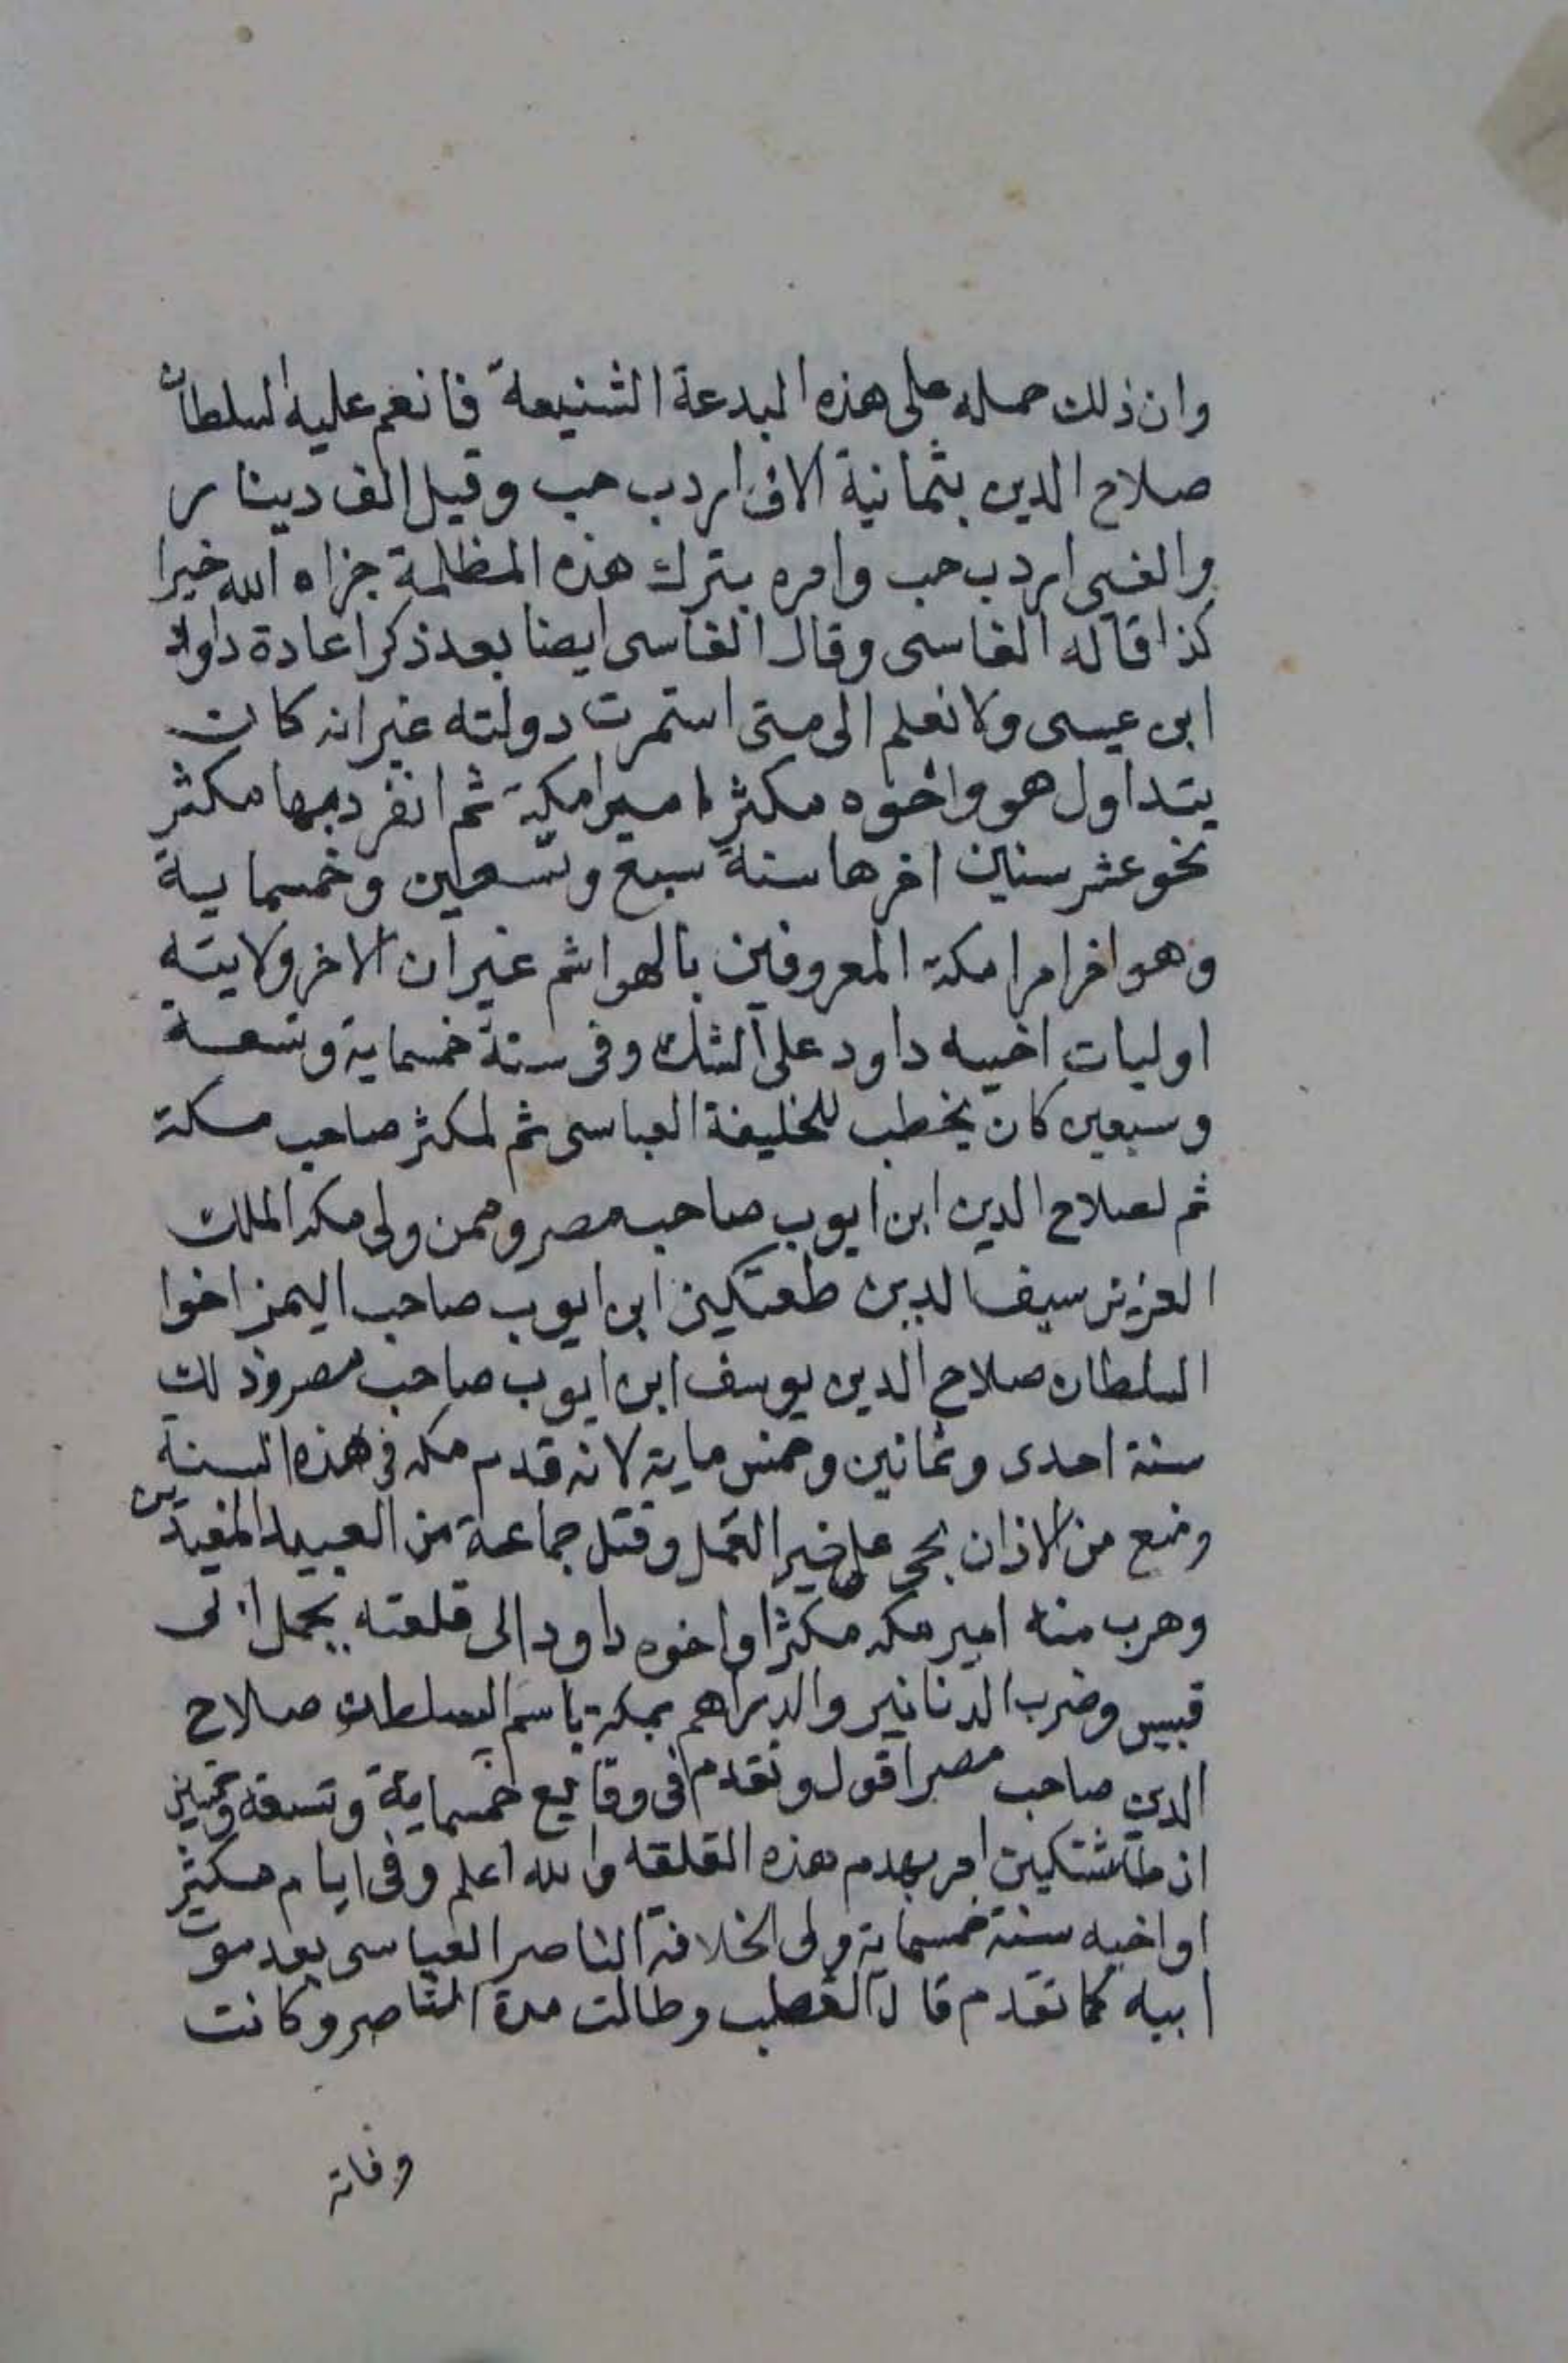 وان ذلك حمله على هذه البدعة الشنيعة فانعم عليه السلطان
صلاح الدين بثمانية الاف اردب حب وقيل الف دينار
والفى اردب حب وامره بترك هذه المظلمة جزاه الله خيرا
كذا قاله الفاسى وقال الفاسى ايضا بعد ذكر اعادة داود
ابن عيسى ولا نعلم الى متى استمرت دولته غير انه كان
يتداول هو واخوه مكثر امير امكة ثم انفرد بها مكثر
نحو عشر سنين اخرها سنة سبع وتسعين وخمسماية
وهو اخر امرا مكة المعروفين بالهواشم غير ان الاخر ولايته
اوليات اخيه داود على الشك وفى سنة خمسماية وتسعة
وسبعين كان يخطب للخليفة العباسى ثم لمكثر صاحب مكة
ثم لصلاح الدين ابن ايوب صاحب مصر وممن ولى مكه الملك
العزيز سيف الدين طغتكين ابن ايوب صاحب اليمن اخوا
السلطان صلاح الدين يوسف ابن ايوب صاحب مصر وذلك
سنة احدى وثمانين وخمس ماية لانه قدم مكه فى هذه السنة
ومنع من الاذان بحى على خير العمل وقتل جماعة من العبيد المفسدين
وهرب منه امير مكه مكثر او اخوه داود الى قلعته بجبل ابى
قبيس وضرب الدنانير والدراهم بمكة باسم السلطان صلاح
الدين صاحب مصر اقول وتقدم فى وقايع خمسماية وتسعة وخمسين
ان طاشتكين امر بهدم هذه القلعه والله اعلم وفى ايام مكثر
او اخيه سنة خمسماية ولى الخلافة الناصر العباسى بعد موت
ابيه كما تقدم قال القطب وطالت مدة الناصر وكانت
وفاته